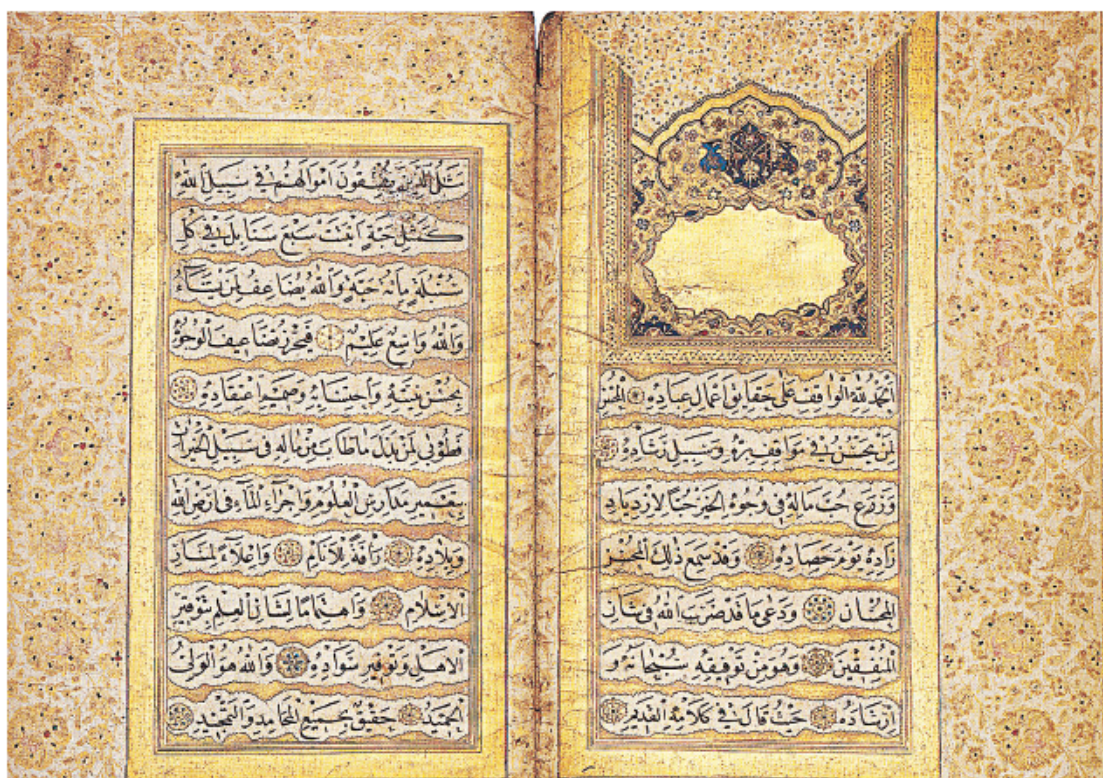 الحمد لله الواقف على حقايق اعمال عباده المحسن
لمن يحسن في مواقف بره وسبيل رشاده
وزرع حب ماله في وجوه الخير حبا لازدياد
زاده يوم حصاده وقد سمع ذلك المخبر
ودعى ما قد ضرب الله في شان
المنفقين وهو من توفيقه سبحانه و
ارشاده حيث قال في كلامه القديم
مثل الذين ينفقون اموالهم في سبيل الله
كمثل حبة انبتت سبع سنابل في كل
سنبلة مائة حبة والله يضاعف لمن يشاء
والله واسع عليم
بحسن نيته واحتسابه وصميم اعتقاده
فطوبى لمن بذل ما طاب من ماله في سبيل الخيرات
بتعمير مدارس العلوم واجراء الماء في ارض الله
وبلاده رأفة للانام واعلاء لمنار
الاسلام واهتماما لشان العلم بتوقير
الاهل وتوفير سواده والله هو الولي
الحميد حقيق بجميع المحامد والتمجيد